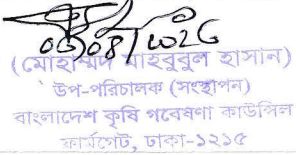 05/08/2026
(মোহাম্মদ মাহবুবুল হাসান)
উপ-পরিচালক (সংস্থাপন)
বাংলাদেশ কৃষি গবেষণা কাউন্সিল
ফার্মগেট, ঢাকা-১২১৫